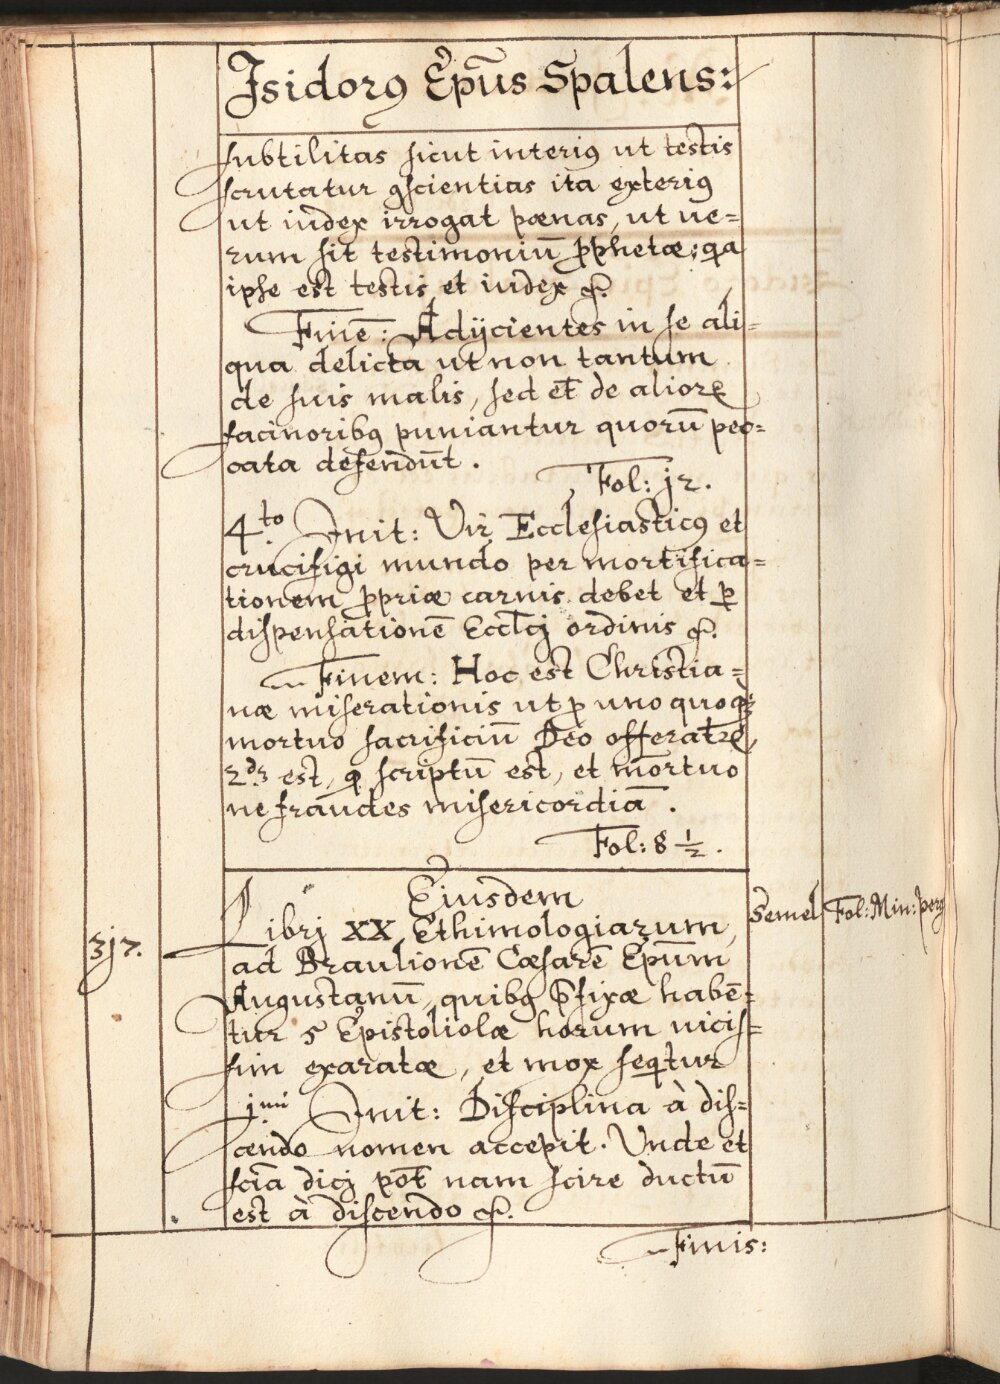 Isidorꝰ Ep̄us Spalens:
subtilitas sicut interiꝰ ut testis
scrutatur ꝯscientias ita exteriꝰ
ut iudex irrogat pœnas, ut ue=
rum sit testimoniū ꝓphetæ: qa
ipse est testis et iudex &.
Finē: Adijcientes in se ali=
qua delicta ut non tantum
de suis malis, sed et̄ de alioꝝ
facinoribꝰ puniantur quorū pec=
cata defendūt.
Fol: j2.
4.to Init: Vir Ecclesiasticꝰ et
crucifigi mundo per mortifica=
tionem ꝓpriæ carnis debet et ꝑ
dispensationē Eccl̄cj ordinis &.
Finem: Hoc est Christia=
næ miserationis ut ꝓ unoquoqꝫ
mortuo sacrificiū Deo offerat̄ꝝ,
2dꝫ est, ꝙ scriptū est, et mortuo
ne fraudes misericordiā.
Fol: 8 ½.
Eiusdem
3j7.
Librj XX Ethimologiarum,
Semel
Fol: Min: perg
ad Braulionē Cæsarē Epūm
Augustanū, quibꝰ p̄fixæ habē=
tur 5 Epistoliolæ horum uicis=
sim exaratæ, et mox seq̄tur
j.mi Init: Disciplina à dis=
cendo nomen accepit. Unde et
scīa dicj pōt nam scire ductū
est à discendo &.
Finis: